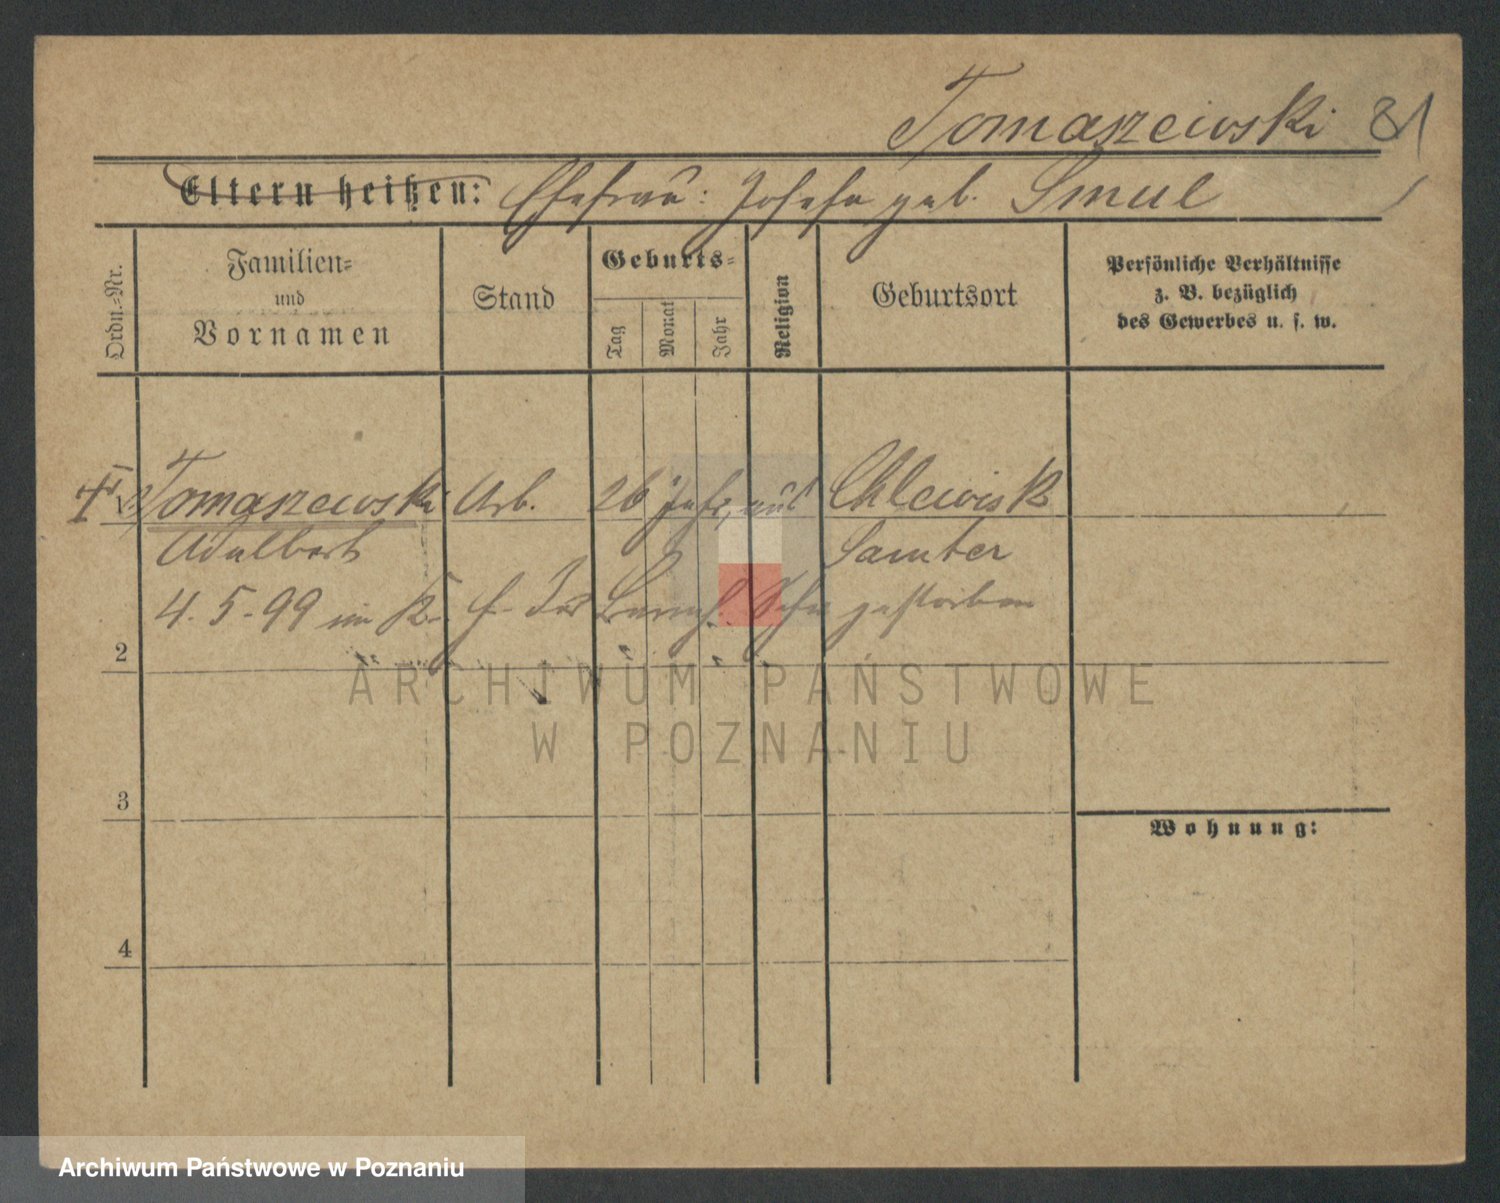 Tomaszewski 81
Eltern heißen: Ehefrau: Josefa geb. Smul
Ordn.-Nr.
Familien-
und
Vornamen
Stand
Geburts-
Tag
Monat
Jahr
Religion
Geburtsort
Persönliche Verhältnisse
z. B. bezüglich
des Gewerbes u. s. w.
Tomaszewski Arb. 26 Jahr, Chlewisk
Adalbert Samter
4. 5. 99 im K. gestorben
2
ARCHIWUM PAŃSTWOWE
W POZNANIU
3
Wohnung:
4
Archiwum Państwowe w Poznaniu